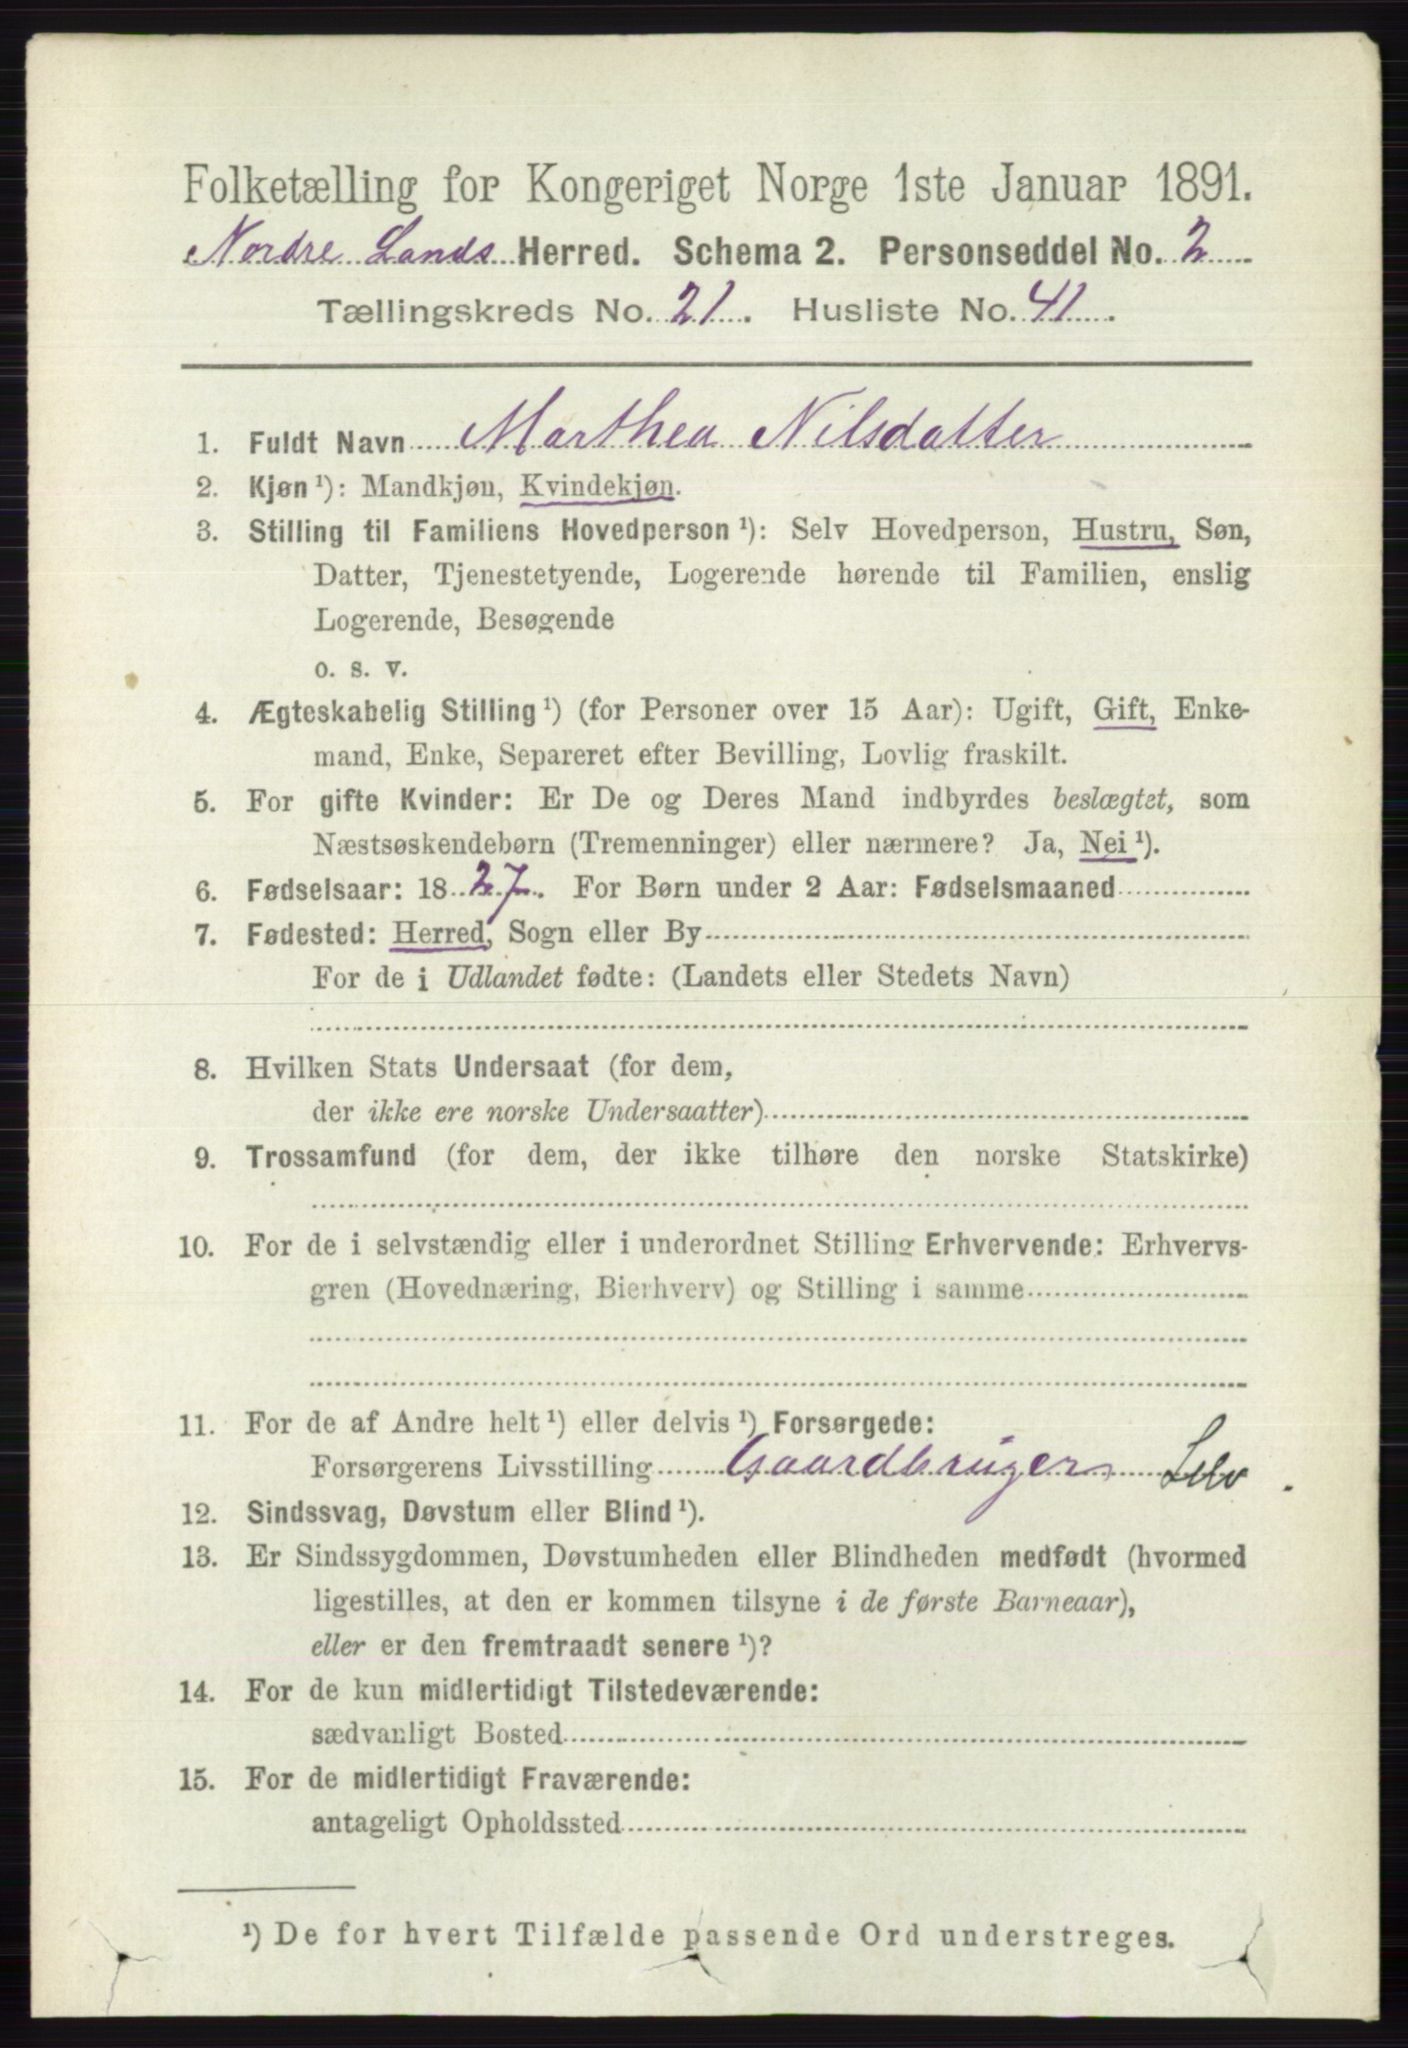 Folketælling for Kongeriget Norge 1ste Januar 1891.
Nordre Lands Herred. Schema 2. Personseddel No. 2
Tællingskreds No. 21. Husliste No. 41.
1. Fuldt Navn Marthea Nilsdatter
2. Kjøn ¹): Mandkjøn, Kvindekjøn.
3. Stilling til Familiens Hovedperson ¹): Selv Hovedperson, Hustru, Søn,
Datter, Tjenestetyende, Logerende hørende til Familien, enslig
Logerende, Besøgende
o. s. v.
4. Ægteskabelig Stilling ¹) (for Personer over 15 Aar): Ugift, Gift, Enke-
mand, Enke, Separeret efter Bevilling, Lovlig fraskilt.
5. For gifte Kvinder: Er De og Deres Mand indbyrdes beslægtet, som
Næstsøskendebørn (Tremenninger) eller nærmere? Ja, Nei ¹).
6. Fødselsaar: 1827. For Børn under 2 Aar: Fødselsmaaned
7. Fødested: Herred, Sogn eller By
For de i Udlandet fødte: (Landets eller Stedets Navn)
8. Hvilken Stats Undersaat (for dem,
der ikke ere norske Undersaatter)
9. Trossamfund (for dem, der ikke tilhøre den norske Statskirke)
10. For de i selvstændig eller i underordnet Stilling Erhvervende: Erhvervs-
gren (Hovednæring, Bierhverv) og Stilling i samme
11. For de af Andre helt ¹) eller delvis ¹) Forsørgede:
Forsørgerens Livsstilling Gaardbruger Selv.
12. Sindssvag, Døvstum eller Blind ¹).
13. Er Sindssygdommen, Døvstumheden eller Blindheden medfødt (hvormed
ligestilles, at den er kommen tilsyne i de første Barneaar),
eller er den fremtraadt senere ¹)?
14. For de kun midlertidigt Tilstedeværende:
sædvanligt Bosted
15. For de midlertidigt Fraværende:
antageligt Opholdssted
¹) De for hvert Tilfælde passende Ord understreges.